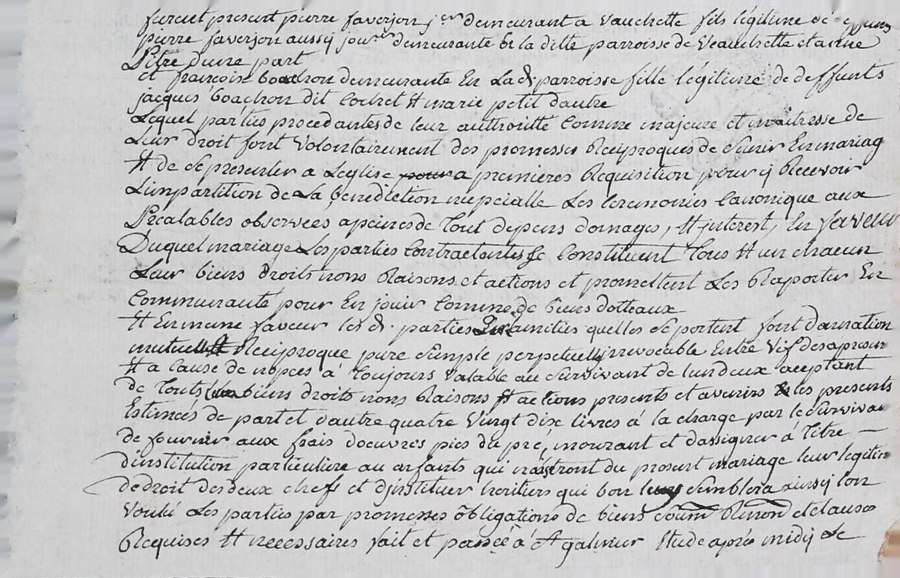 furent present pierre faverjon jer demeurant a vauchette fils légitime de deffunts
pierre faverjon aussy jour demeurante En la ditte parroisse de Veauchette et
Pitre d'une part
et francoise boachon demeurante En La de parroisse fille légitime de deffunts
jacques boachon dit Cochet et marie petit dautre
Lequel parties procedantes de leur authoritté Comme majeure et maitresse de
Leur droit font volontairement des promesses Reciproques de sunir En mariag
et de se presenter a Léglise pour a premieres Requisition pour y Recevoir
L'impartition de La Benediction nupcialle Les Ceremonies Canonique aux
Préalables observées apeines de tout depens domages, et interest, En faveur
Duquel mariage Les parties Contractantes se Constituent tous et un chacun
Leur biens droits noms Raisons et actions et promettent Les Raporter En
Communauté pour En jouir Comme de biens dotteaux
et En meme faveur les d. parties amities quelles se portent font donnation
mutuelle Reciproque pure simple perpetuelle irrevocable Entre vifs desapresent
et a Cause de nopces a toujours valable au survivant de lun deux aceptant
de touts biens droits noms Raisons et actions presents et avenirs les presents
Estimés de part et dautre quatre vingt dix livres à la charge par le Survivan
de fournir aux frais doeuvres pies du pré, mourant et dassigner à titre
dinstitution particulière au enfants qui naistront du present mariage leur legitim
de droit des deux chefs et d'instituer heritiers qui bon Semblera ainsy lon
voulu Les parties par promesses obligations de biens Renon et clauses
Requises et necessaires fait et passée à St galmier Etude après midy Le